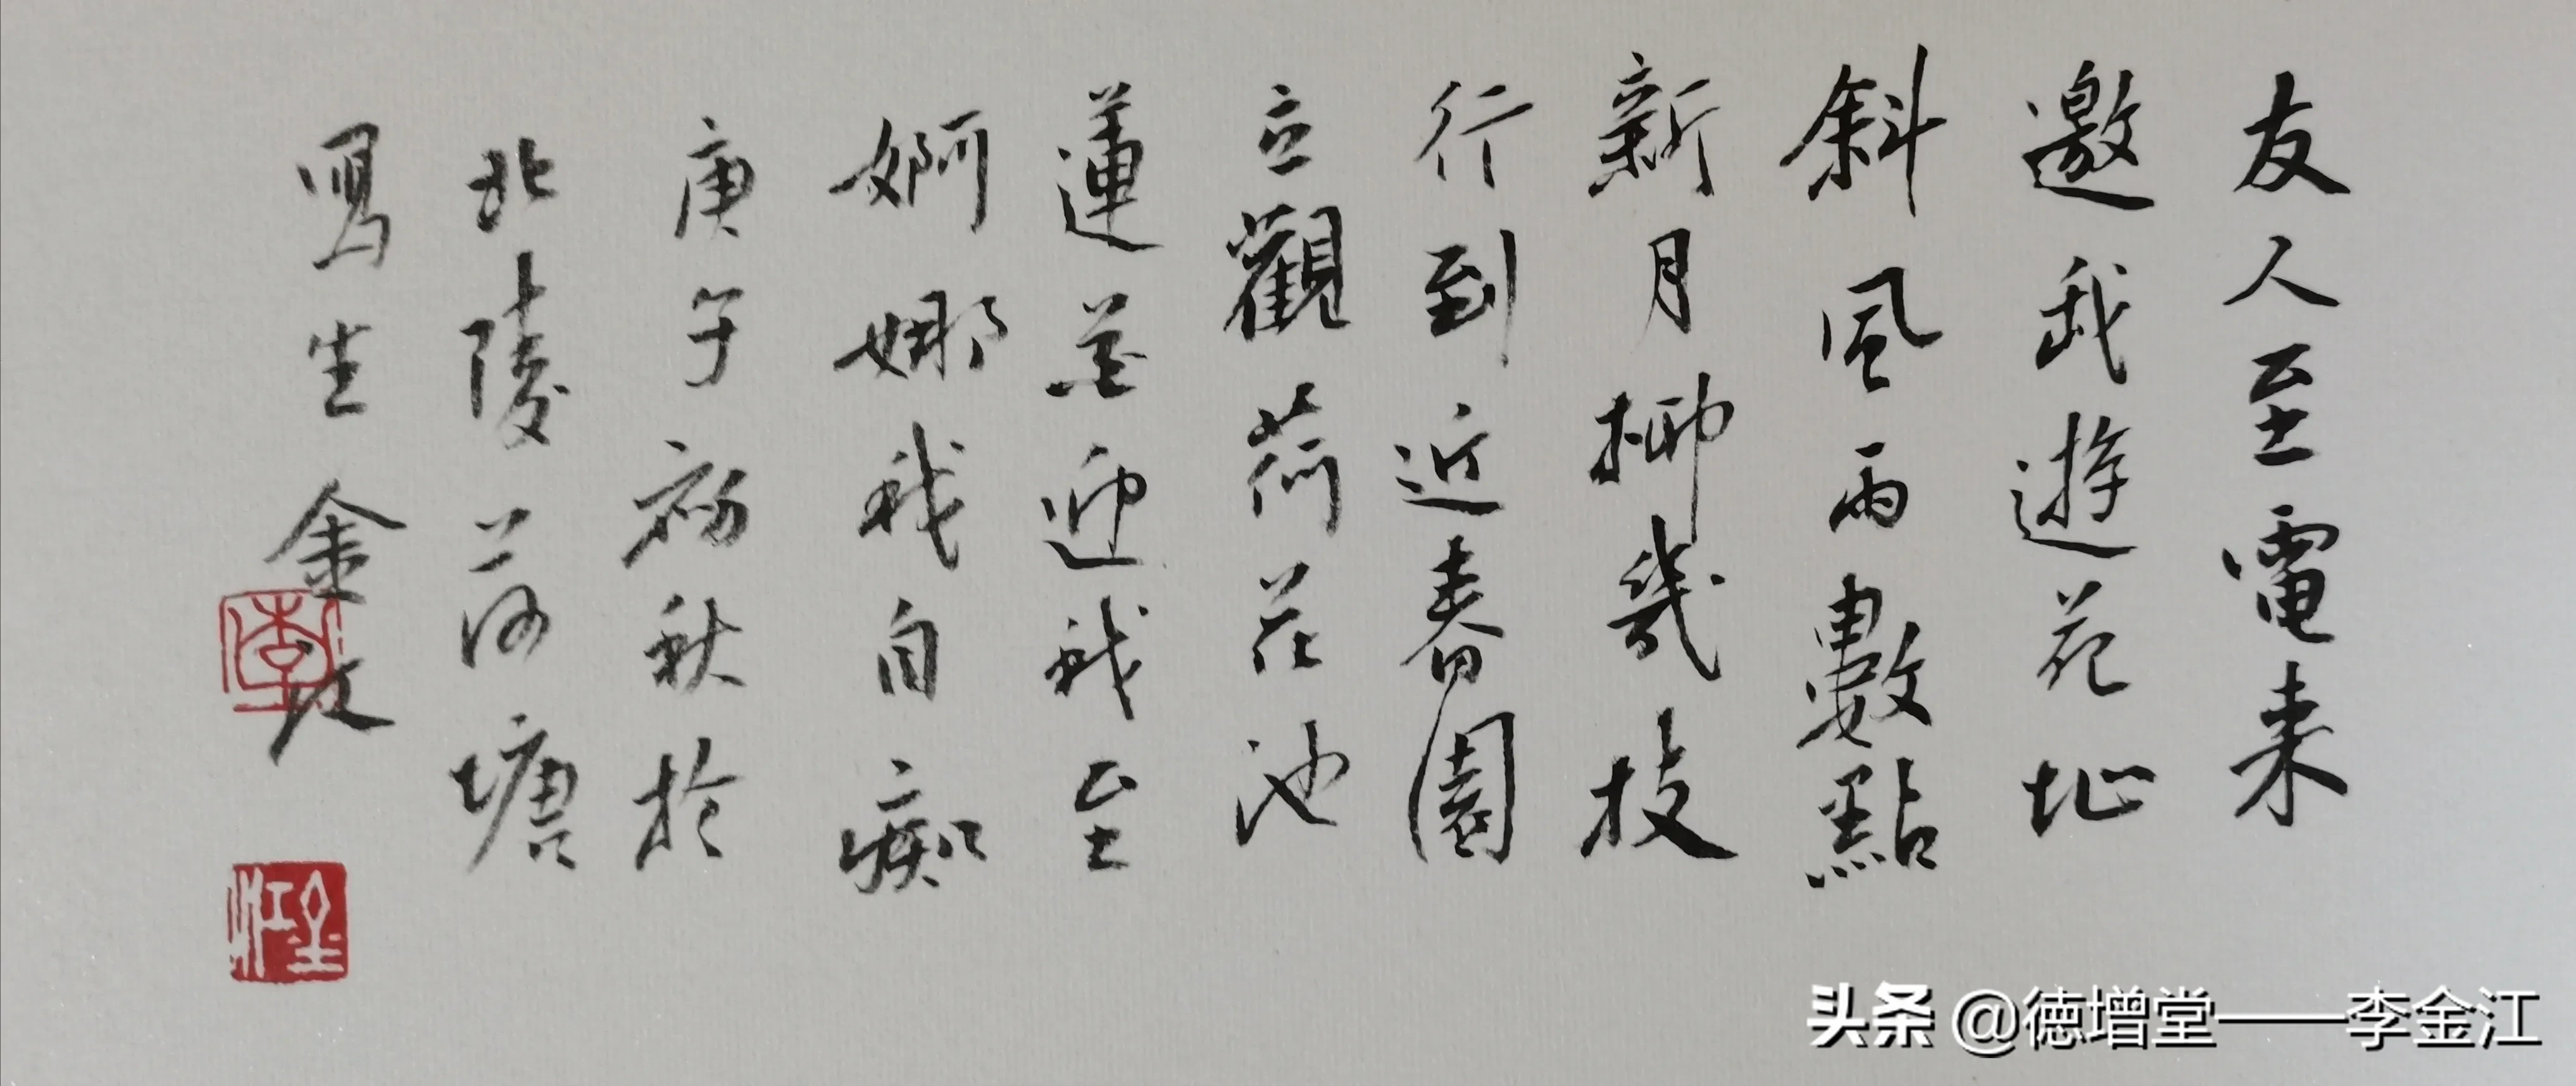 友人至電来
邀我遊花址
斜風雨數點
新月柳幾枝
行到近春園
立觀荷花池
蓮迎我至
婀娜我自痴
庚子初秋於
北陵荷塘
寫生金江
李
金江
头条 @德增堂——李金江